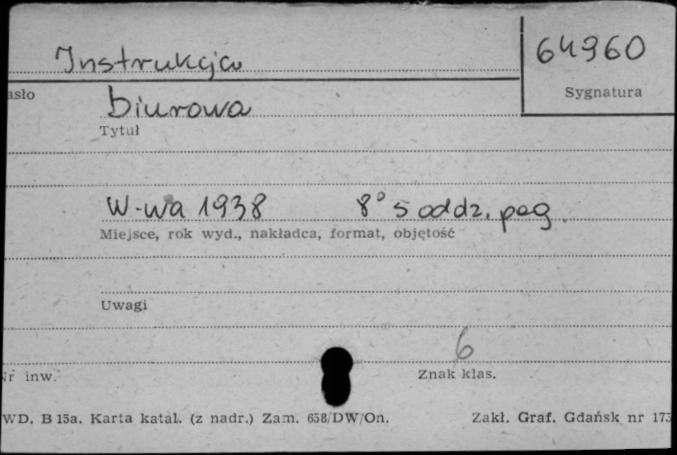 Instrukcja
64960
Sygnatura
asło
biurowa
Tytuł
W-wa 1938 8° 5 oddz. pag.
Miejsce, rok wyd., nakładca, format, objętość
Uwagi
6
Nr inw.
Znak klas.
WD. B 15a. Karta katal. (z nadr.) Zam. 658/DW/On.
Zakł. Graf. Gdańsk nr 173